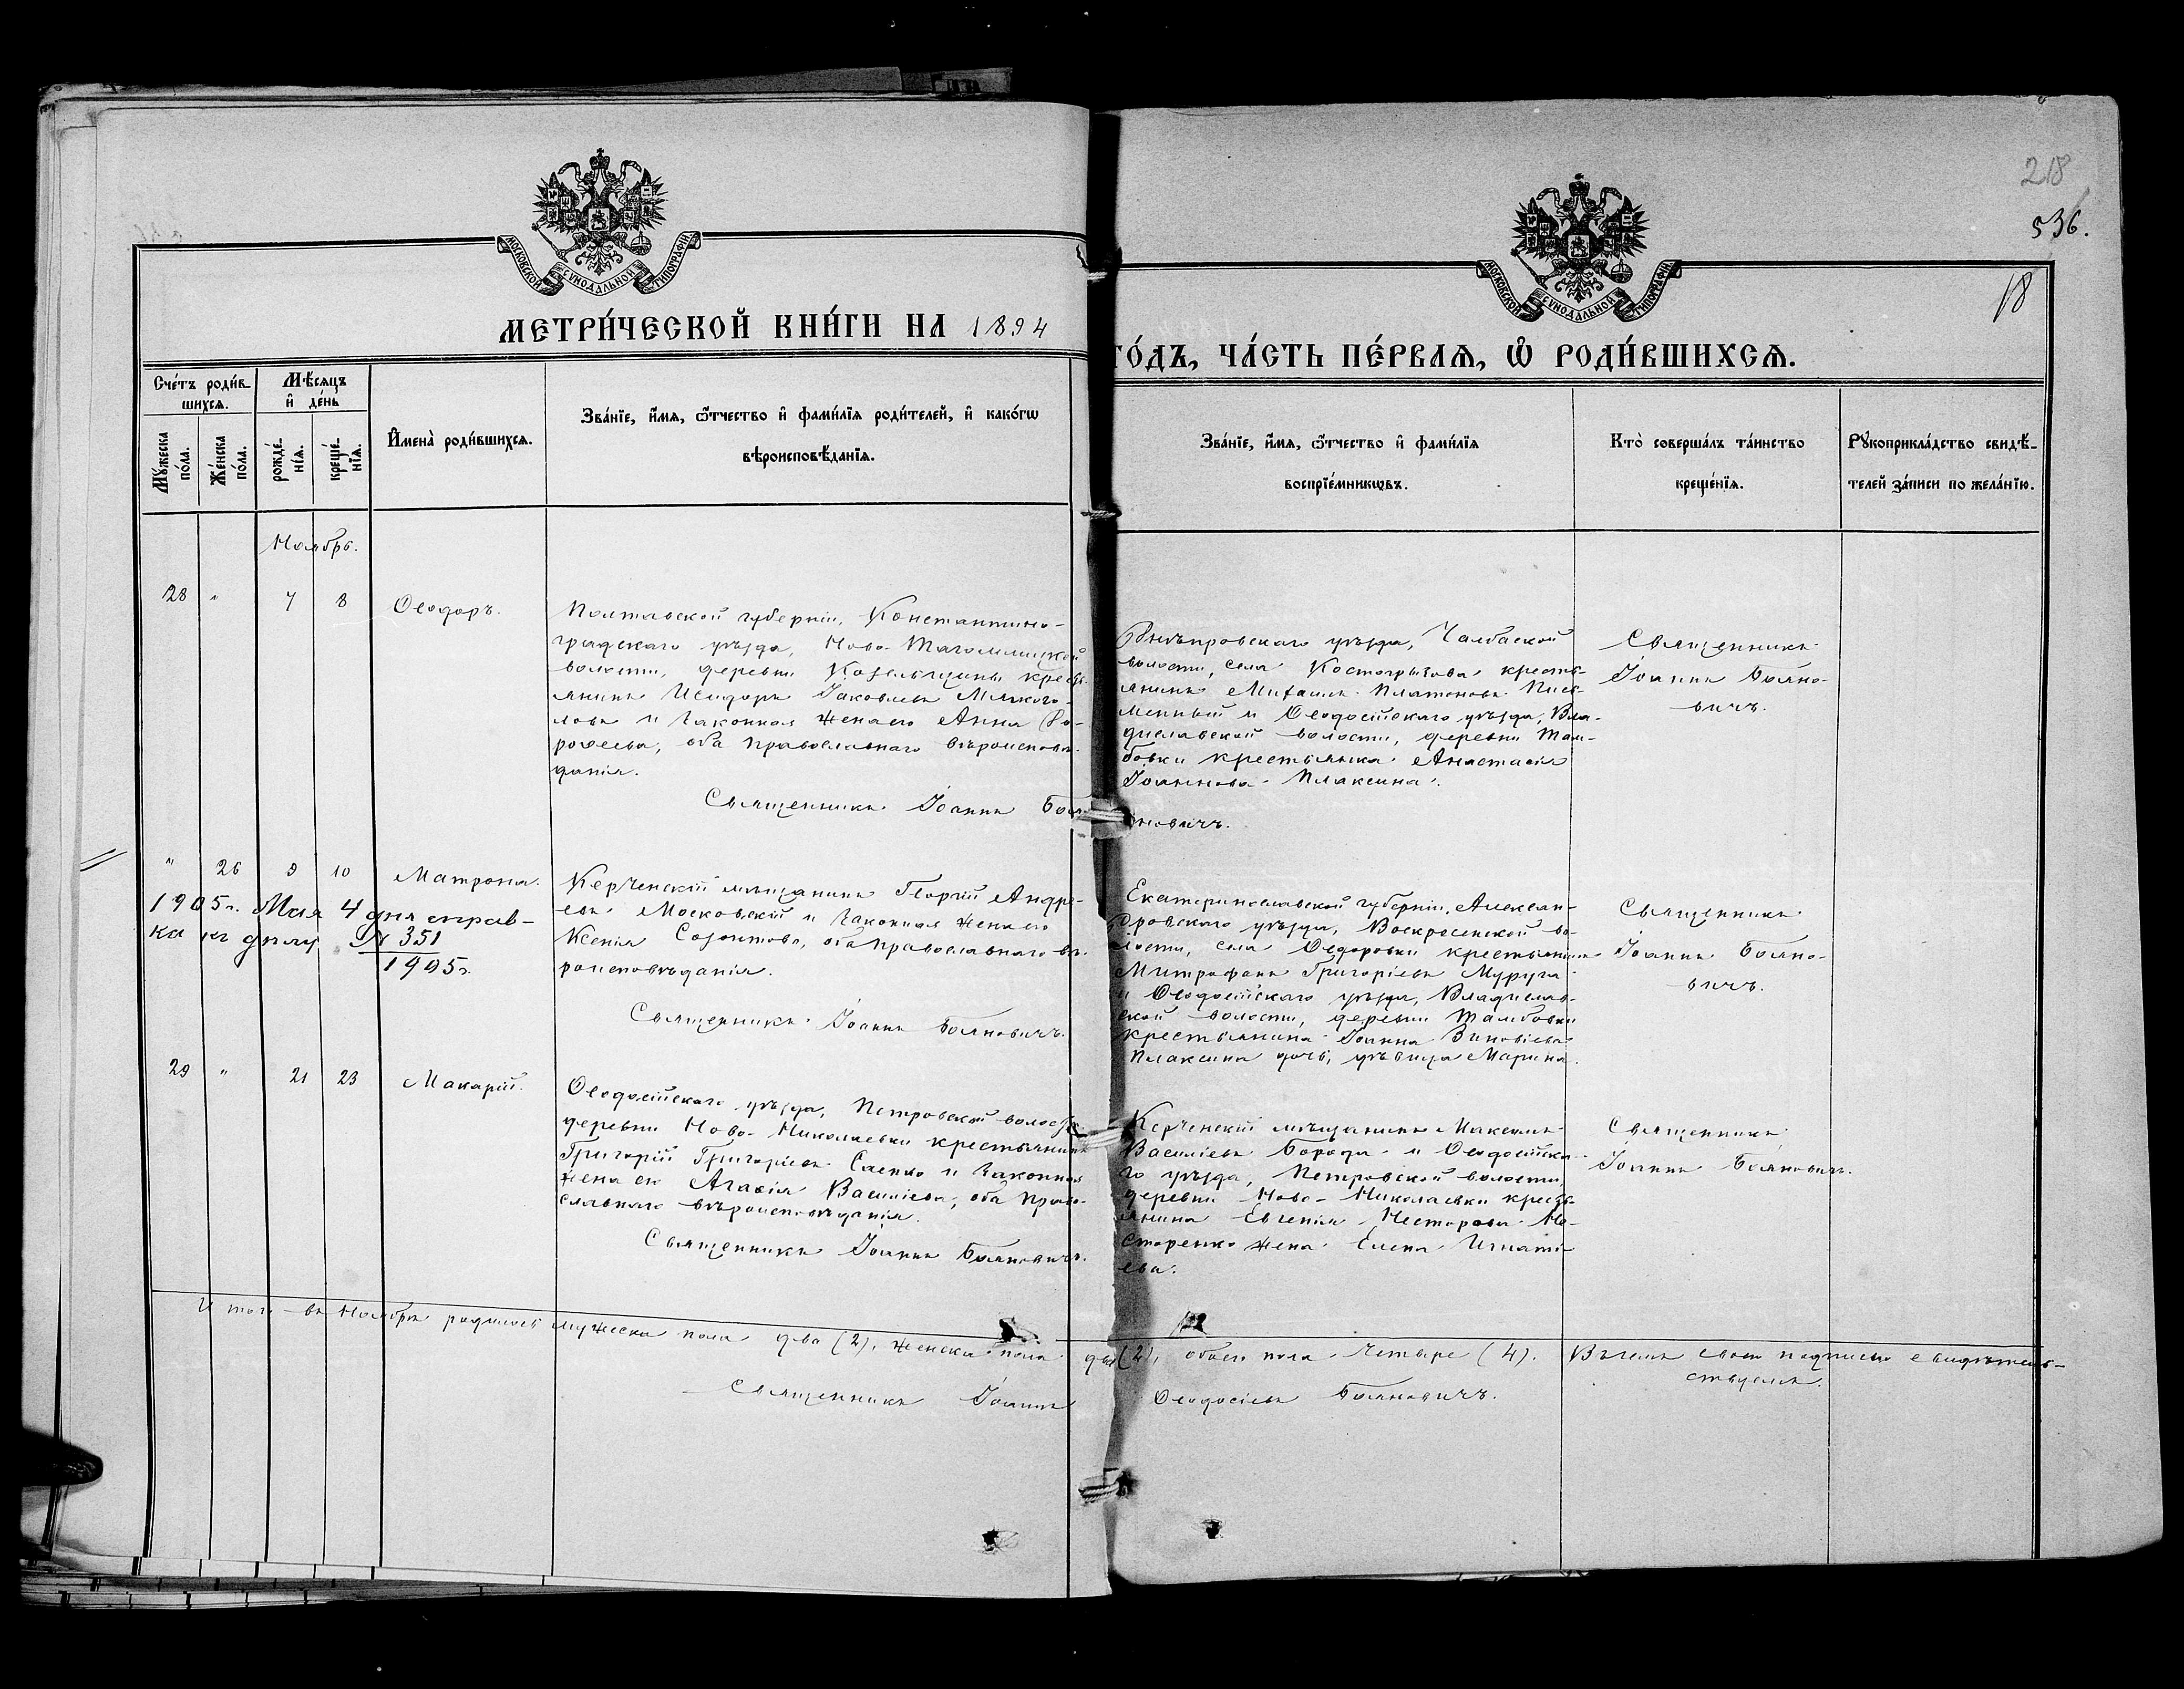 218
536.
18
МОСКОВСКОЙ СѴНОДАЛЬНОЙ ТИПОГРАФІИ
МОСКОВСКОЙ СѴНОДАЛЬНОЙ ТИПОГРАФІИ
МЕТРИ́ЧЕСКОЙ КНИ́ГИ НА 1894
ГО́ДЪ, ЧА́СТЬ ПЕ́РВАЯ, Ѡ҆ РОДИ́ВШИХСЯ.
Сче́тъ роди́в
шихся.
Мꙋ́жеска
по́ла.
Же́нска
по́ла.
Мѣ́сяцъ
и҆ де́нь
рожде́-
нїя.
креще́-
нїя.
И҆мена̀ роди́вшихся.
Зва́нїе, и҆́мя, ѻ҆́тчество и҆ фами́лїя роди́телей, и҆ како́гѡ
вѣроисповѣ́данїя.
Зва́нїе, и҆́мя, ѻ҆́тчество и҆ фами́лїя
воспрїе́мникѡвъ.
Кто̀ соверша́лъ та́инство
креще́нїя.
Рꙋкоприкла́дство свидѣ́-
телей за́писи по жела́нїю.
Ноябрь.
28 " 7 8 Ѳеодоръ.
Полтавской губерніи, Константино-
градскаго уѣзда, Ново-Тагамлицкой
волости, деревни Козельщины кресть-
янинъ Исидоръ Іаковлевъ Мякого-
ловъ и законная жена его Анна До-
роѳеева, оба православнаго вѣроисповѣ-
данія.
Священникъ Іоаннъ Боя-
новичъ.
Днѣпровскаго уѣзда, Чалбаской
волости, села Костогрызова кресть-
янинъ Михаилъ Платоновъ Пись-
менный и Ѳеодосійскаго уѣзда, Вла-
диславской волости, деревни Там-
бовки крестьянка Анастасія
Іоаннова Плаксина.
Священникъ
Іоаннъ Бояно-
вичъ.
" 26 9 10 Матрона.
1905 г. Мая 4 дня справ-
ка къ дѣлу № 351
1905 г.
Керченскій мѣщанинъ Георгій Андре-
евъ Московскій и законная жена его
Ксенія Созонтова, оба православнаго вѣ-
роисповѣданія.
Священникъ Іоаннъ Бояновичъ.
Екатеринославской губерніи, Алексан-
дровскаго уѣзда, Воскресенской во-
лости, села Ѳедоровки крестьянинъ
Митрофанъ Григоріевъ Муруга
и Ѳеодосійскаго уѣзда, Владислав-
ской волости, деревни Тамбовки
крестьянина Іоанна Зиновіева
Плаксина дочь, дѣвица Марина.
Священникъ
Іоаннъ Бояно-
вичъ.
29 " 21 23 Макарій.
Ѳеодосійскаго уѣзда, Петровской волости,
деревни Ново-Николаевки крестьянинъ
Григорій Григоріевъ Саенко и законная
жена его Агаѳія Василіева, оба право-
славнаго вѣроисповѣданія.
Священникъ Іоаннъ Бояновичъ.
Керченскій мѣщанинъ Максимъ
Василіевъ Борода и Ѳеодосійска-
го уѣзда, Петровской волости,
деревни Ново-Николаевки кресть-
янина Евгенія Несторова Не-
сторенко жена Елена Игнаті-
ева.
Священникъ
Іоаннъ Бояновичъ.
Итого въ Ноябрѣ родилось мужеска пола два (2), женска пола два (2), обоего пола четыре (4). Въ чемъ своею подписью свидѣтель-
ствуемъ.
Священникъ Іоаннъ Ѳеодосіевъ Бояновичъ.